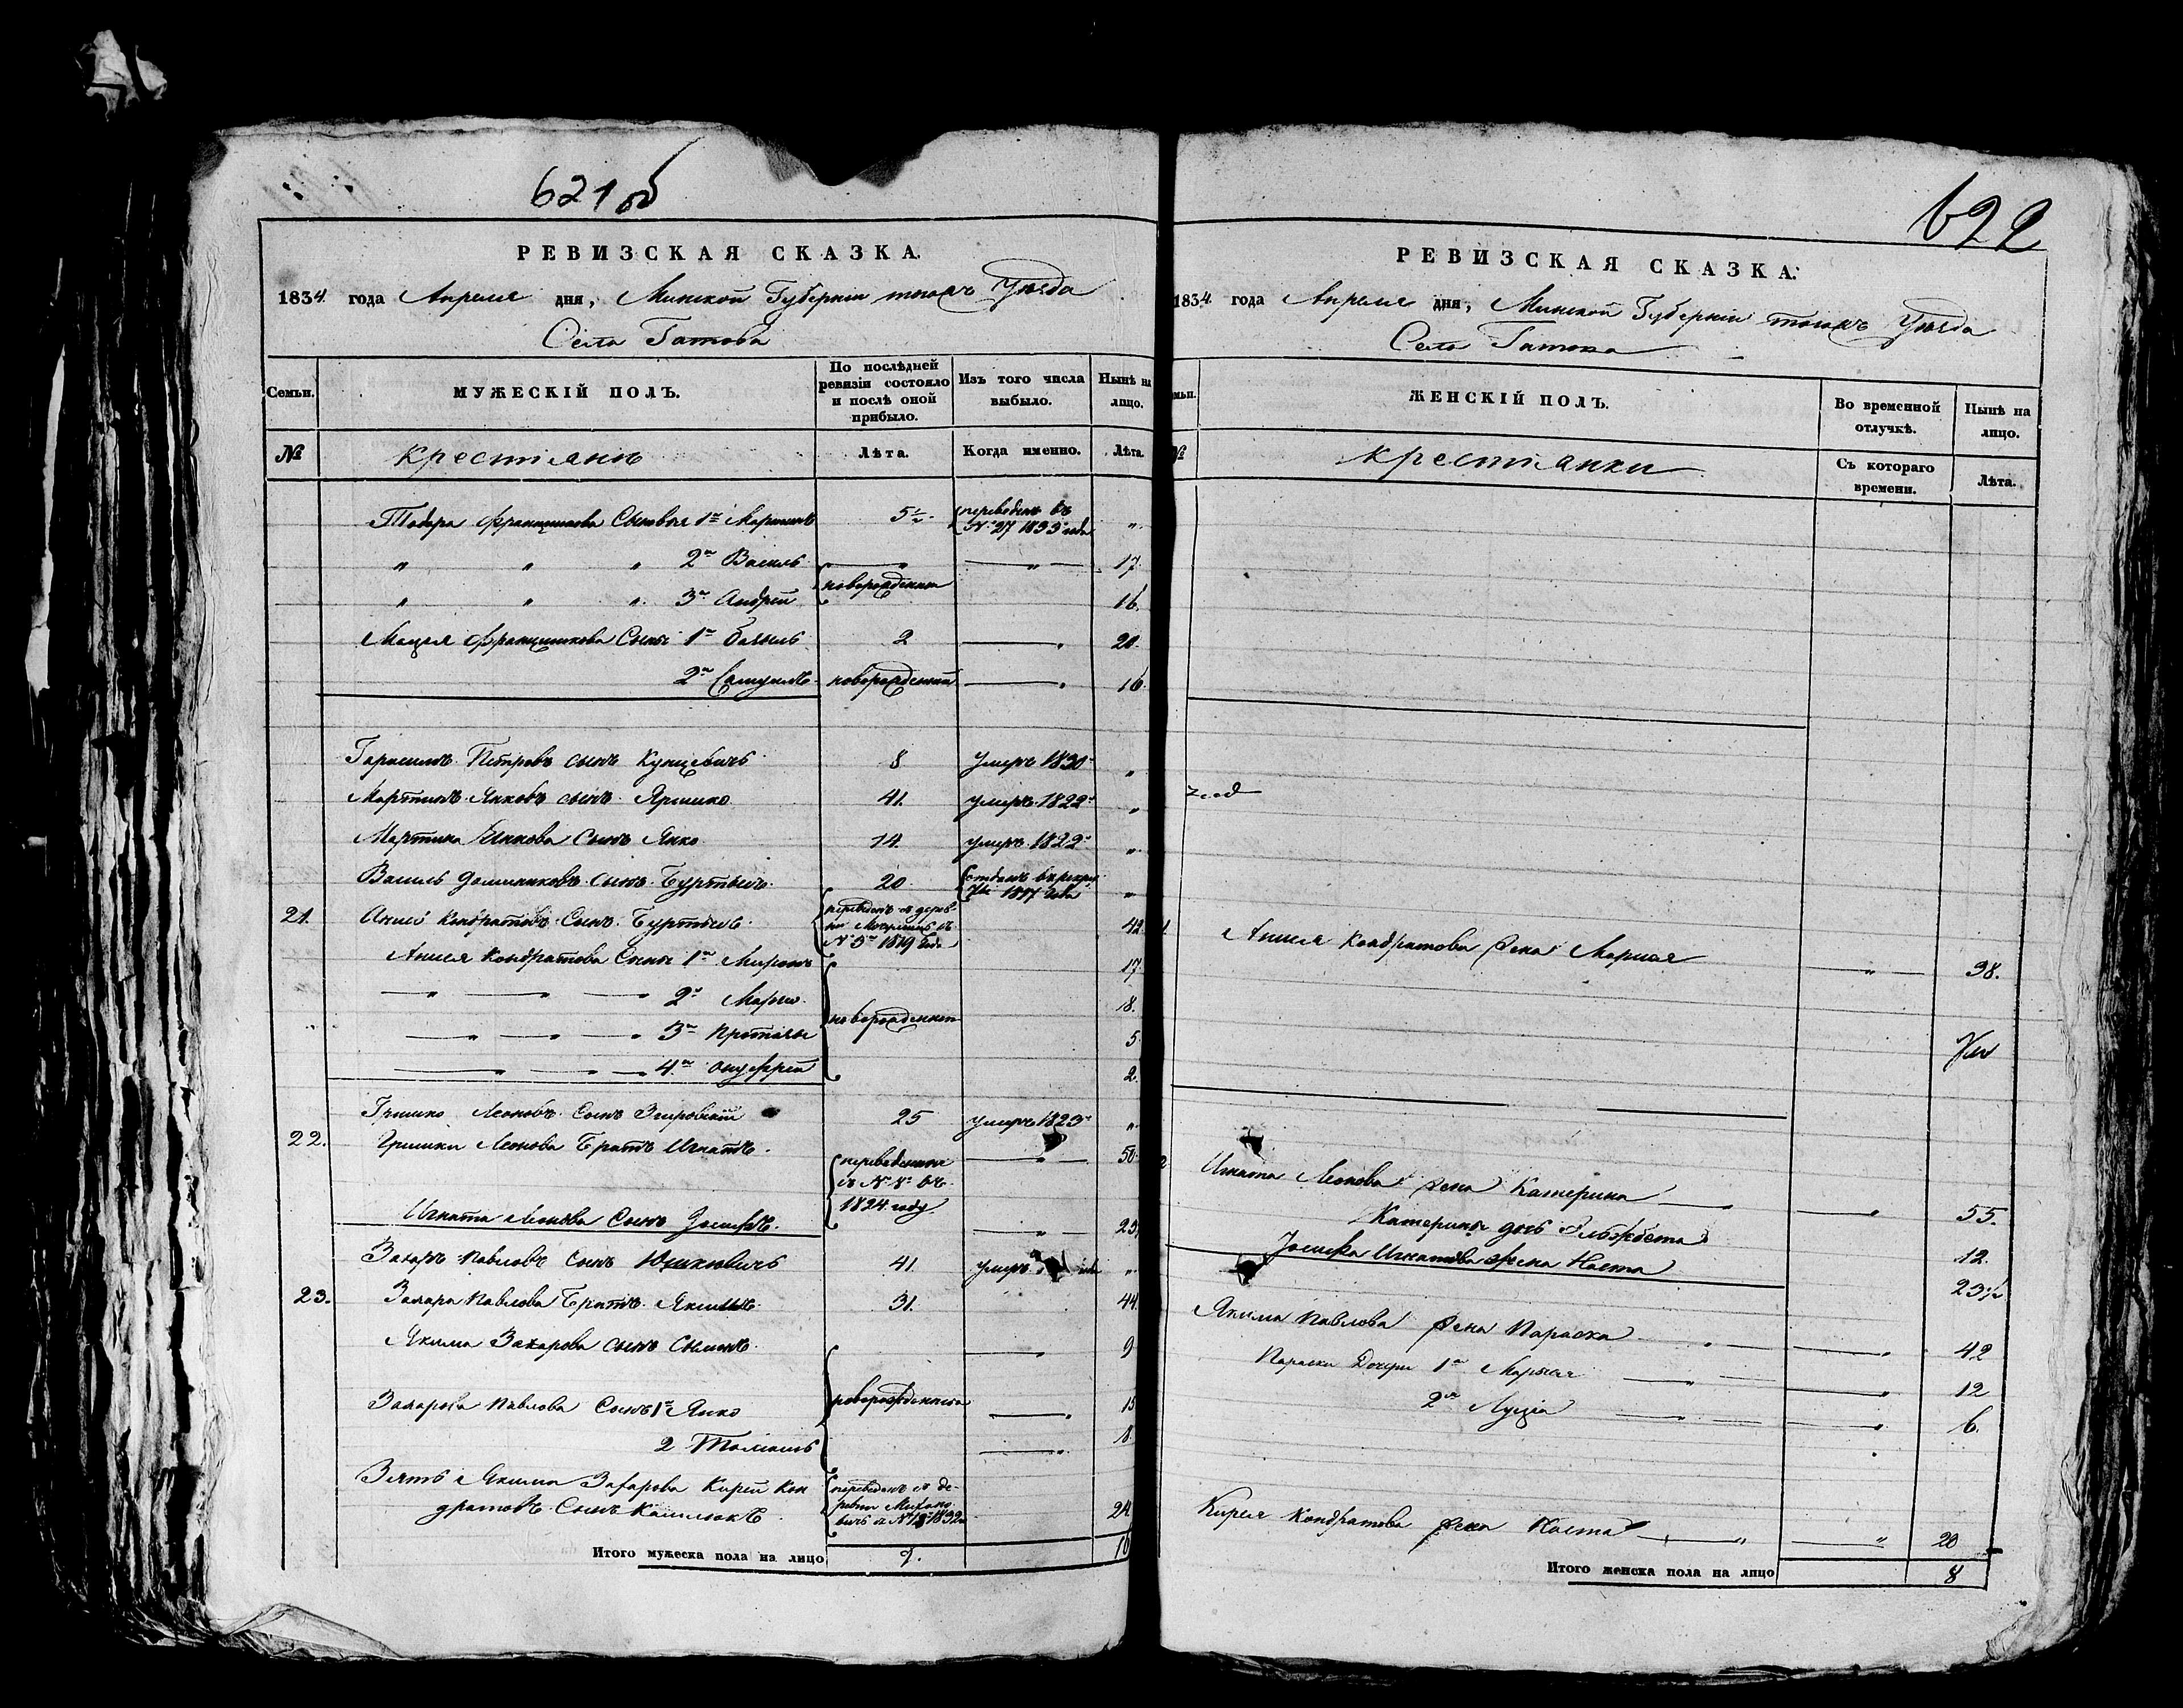 621 об
РЕВИЗСКАЯ СКАЗКА.
1834 года Апреля дня, Минской Губернiи тогожъ Уѣзда
Села Гатова
Семьи.
МУЖЕСКIЙ ПОЛЪ.
По послѣдней ревизiи состояло и послѣ оной прибыло.
Изъ того числа выбыло.
Нынѣ на лицо.
№
Крестьяне
Лѣта.
Когда именно.
Лѣта.
Тодора Францишкова Сыновья 1й 5 1/2 переведенъ въ № 27 1833 года "
" " " 2й Василь " " 17.
" " " 3й Андрей новорожденные 16.
Мацея Францишкова Сыны 1й 2 " 20.
2й Самуилъ новорожденный " 16.
Гарасимъ Петровъ сынъ Кунцевичъ 8 умеръ 1830 "
Мартинъ Янковъ сынъ Ярмико 41. умеръ 1822 "
Мартина Янкова Сынъ Янко 14. умеръ 1822 "
Василь сынъ Буртыль 20. отданъ въ "
21. Кондратовъ Сынъ Буртыль переведенъ изъ № 5 1819 года 42
Кондратова Сыны 1й Миронъ 17
" " " 2й 18.
" " " 3й новорожденные 5
" " " 4й Онуфрей 2.
Гришко Леоновъ Сынъ 25 умеръ 1823 "
22. Гришки Леонова Братъ Игнатъ переведенные съ № въ 1824 году " 50
Игната Леонова Сынъ Іосифъ " 23
Захаръ Павловъ Сынъ Юшкевичъ 41. умеръ "
23. Захара Павлова Братъ Якимъ 31. 44.
Якима Захарова сынъ Сымонъ " 9
Захарова Павлова Сынъ 1й Янко новорожденные " 15
2 Томашъ " 8.
Зять Якима Захарова Кирей Кондратовъ Сынъ переведенъ изъ деревни 1832 24
Итого мужеска пола на лицо 9. 16
622
РЕВИЗСКАЯ СКАЗКА.
1834 года Апреля дня, Минской Губернiи тогожъ Уѣзда
Села Гатова
ЖЕНСКIЙ ПОЛЪ.
Во временной отлучкѣ.
Нынѣ на лицо.
№
Крестьянки
Съ котораго времени.
Лѣта.
Кондратова жена Марьия " 38.
Игната Леонова жена Катерина " 55.
Катерины дочь Эльжбета 12.
Іосифа Игнатова жена Наста 23 1/2
Якима Павлова жена Параска " " 42
Параски Дочери 1я Марьия " " 12
2я Луція " " 6.
Кирея Кондратова жена Наста " " 20
Итого женска пола на лицо 8